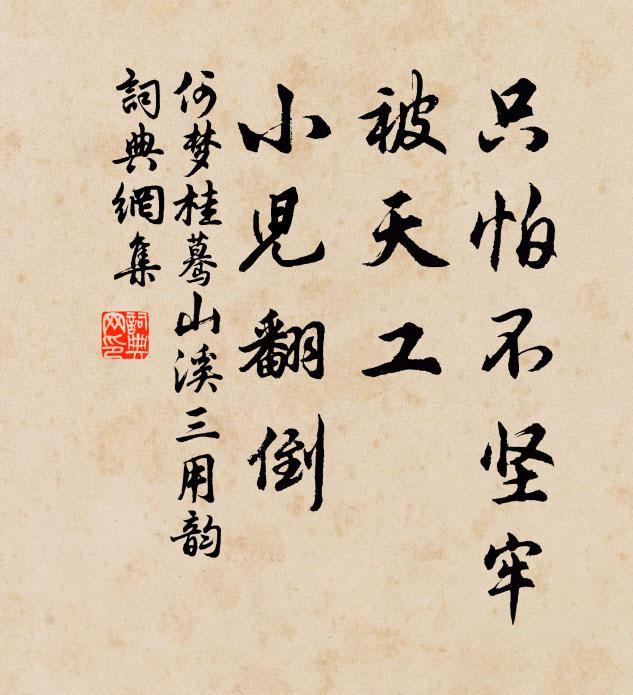 只怕不坚牢
被天工
小児翻倒
何梦桂蓦山溪三用韵
詞典網集
詞典网印